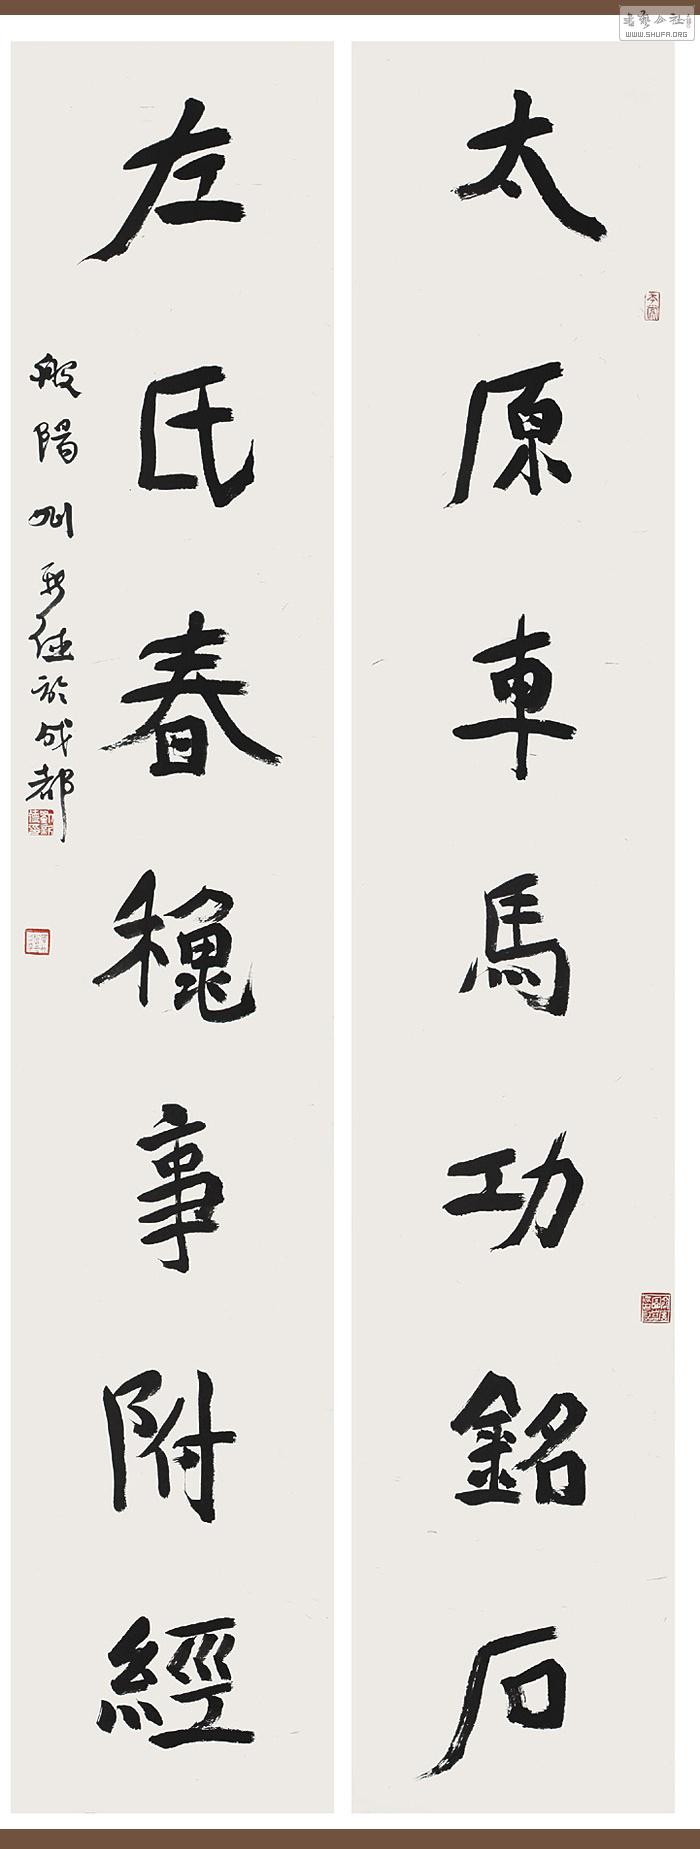 太原車馬功銘石
左氏春穐事附經
般陽劉新德於成都
書藝公社
WWW.SHUFA.ORG